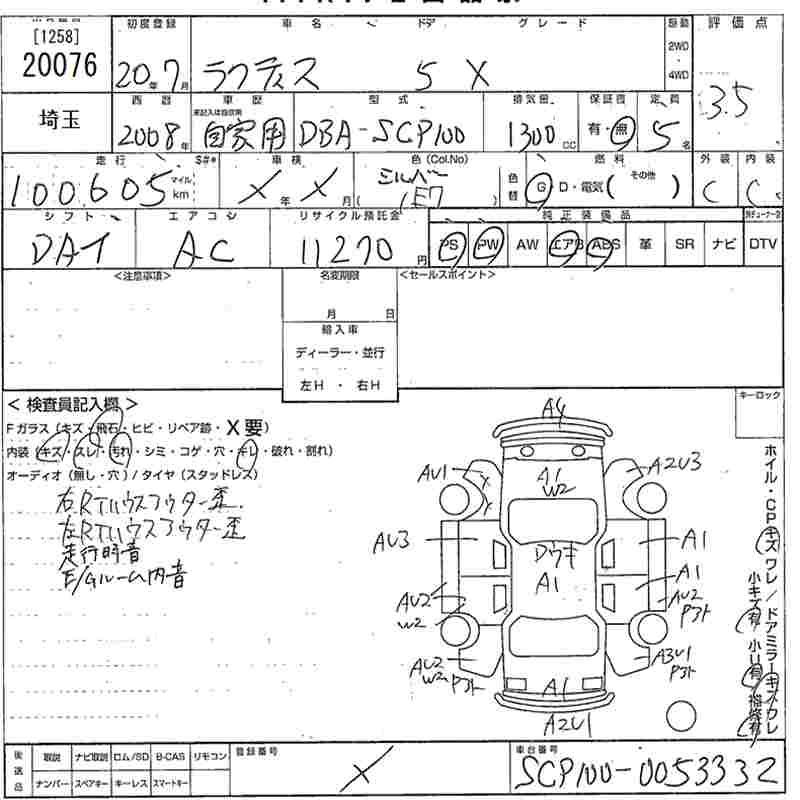 [1258]
20076
初度登録 車名 ドア グレード 駆動 評価点
20年7月 ラクティス 5 X 2WD・4WD 3.5
埼玉
西暦 車歴 型式 排気量 保証書 定員
2008年 自家用 DBA-SCP100 1300cc 有・無 5名
走行 S#* 車検 色(Col.No) 色替 燃料 外装 内装
100605 マイル km X年X月 シルバー 1E7 G D・電気( その他 ) C C
シフト エアコン リサイクル預託金 純正装備品
DAT AC 11270円 PS PW AW エアB ABS 革 SR ナビ DTV
<注意事項> 名変期限 <セールスポイント>
月 日
輸入車
ディーラー・並行
左H ・ 右H
<検査員記入欄> キーロック
Fガラス(キズ・飛石・ヒビ・リペア跡・X要)
内装(キズ・スレ・汚れ・シミ・コゲ・穴・キレ・破れ・割れ)
オーディオ(無し・穴)/タイヤ(スタッドレス)
右RTハウスアウター歪
左RTハウスアウター歪
走行時音
E/Gルーム内音
A4
AU1 A1 W2 A2U3
AU3 ドウキ A1
A1 A1
AU2 W2 AU2 Pアト
AU2 W2 Pアト A3U1 Pアト
A1
A2U1
ホイル・CPキズワレ/ドアミラーキズワレ
小キズ有 小U有 補修有
後送品 取説 ナビ取説 ロム/SD B-CAS リモコン 登録番号 車台番号
ナンバー スペアキー キーレス スマートキー X SCP100-0053332